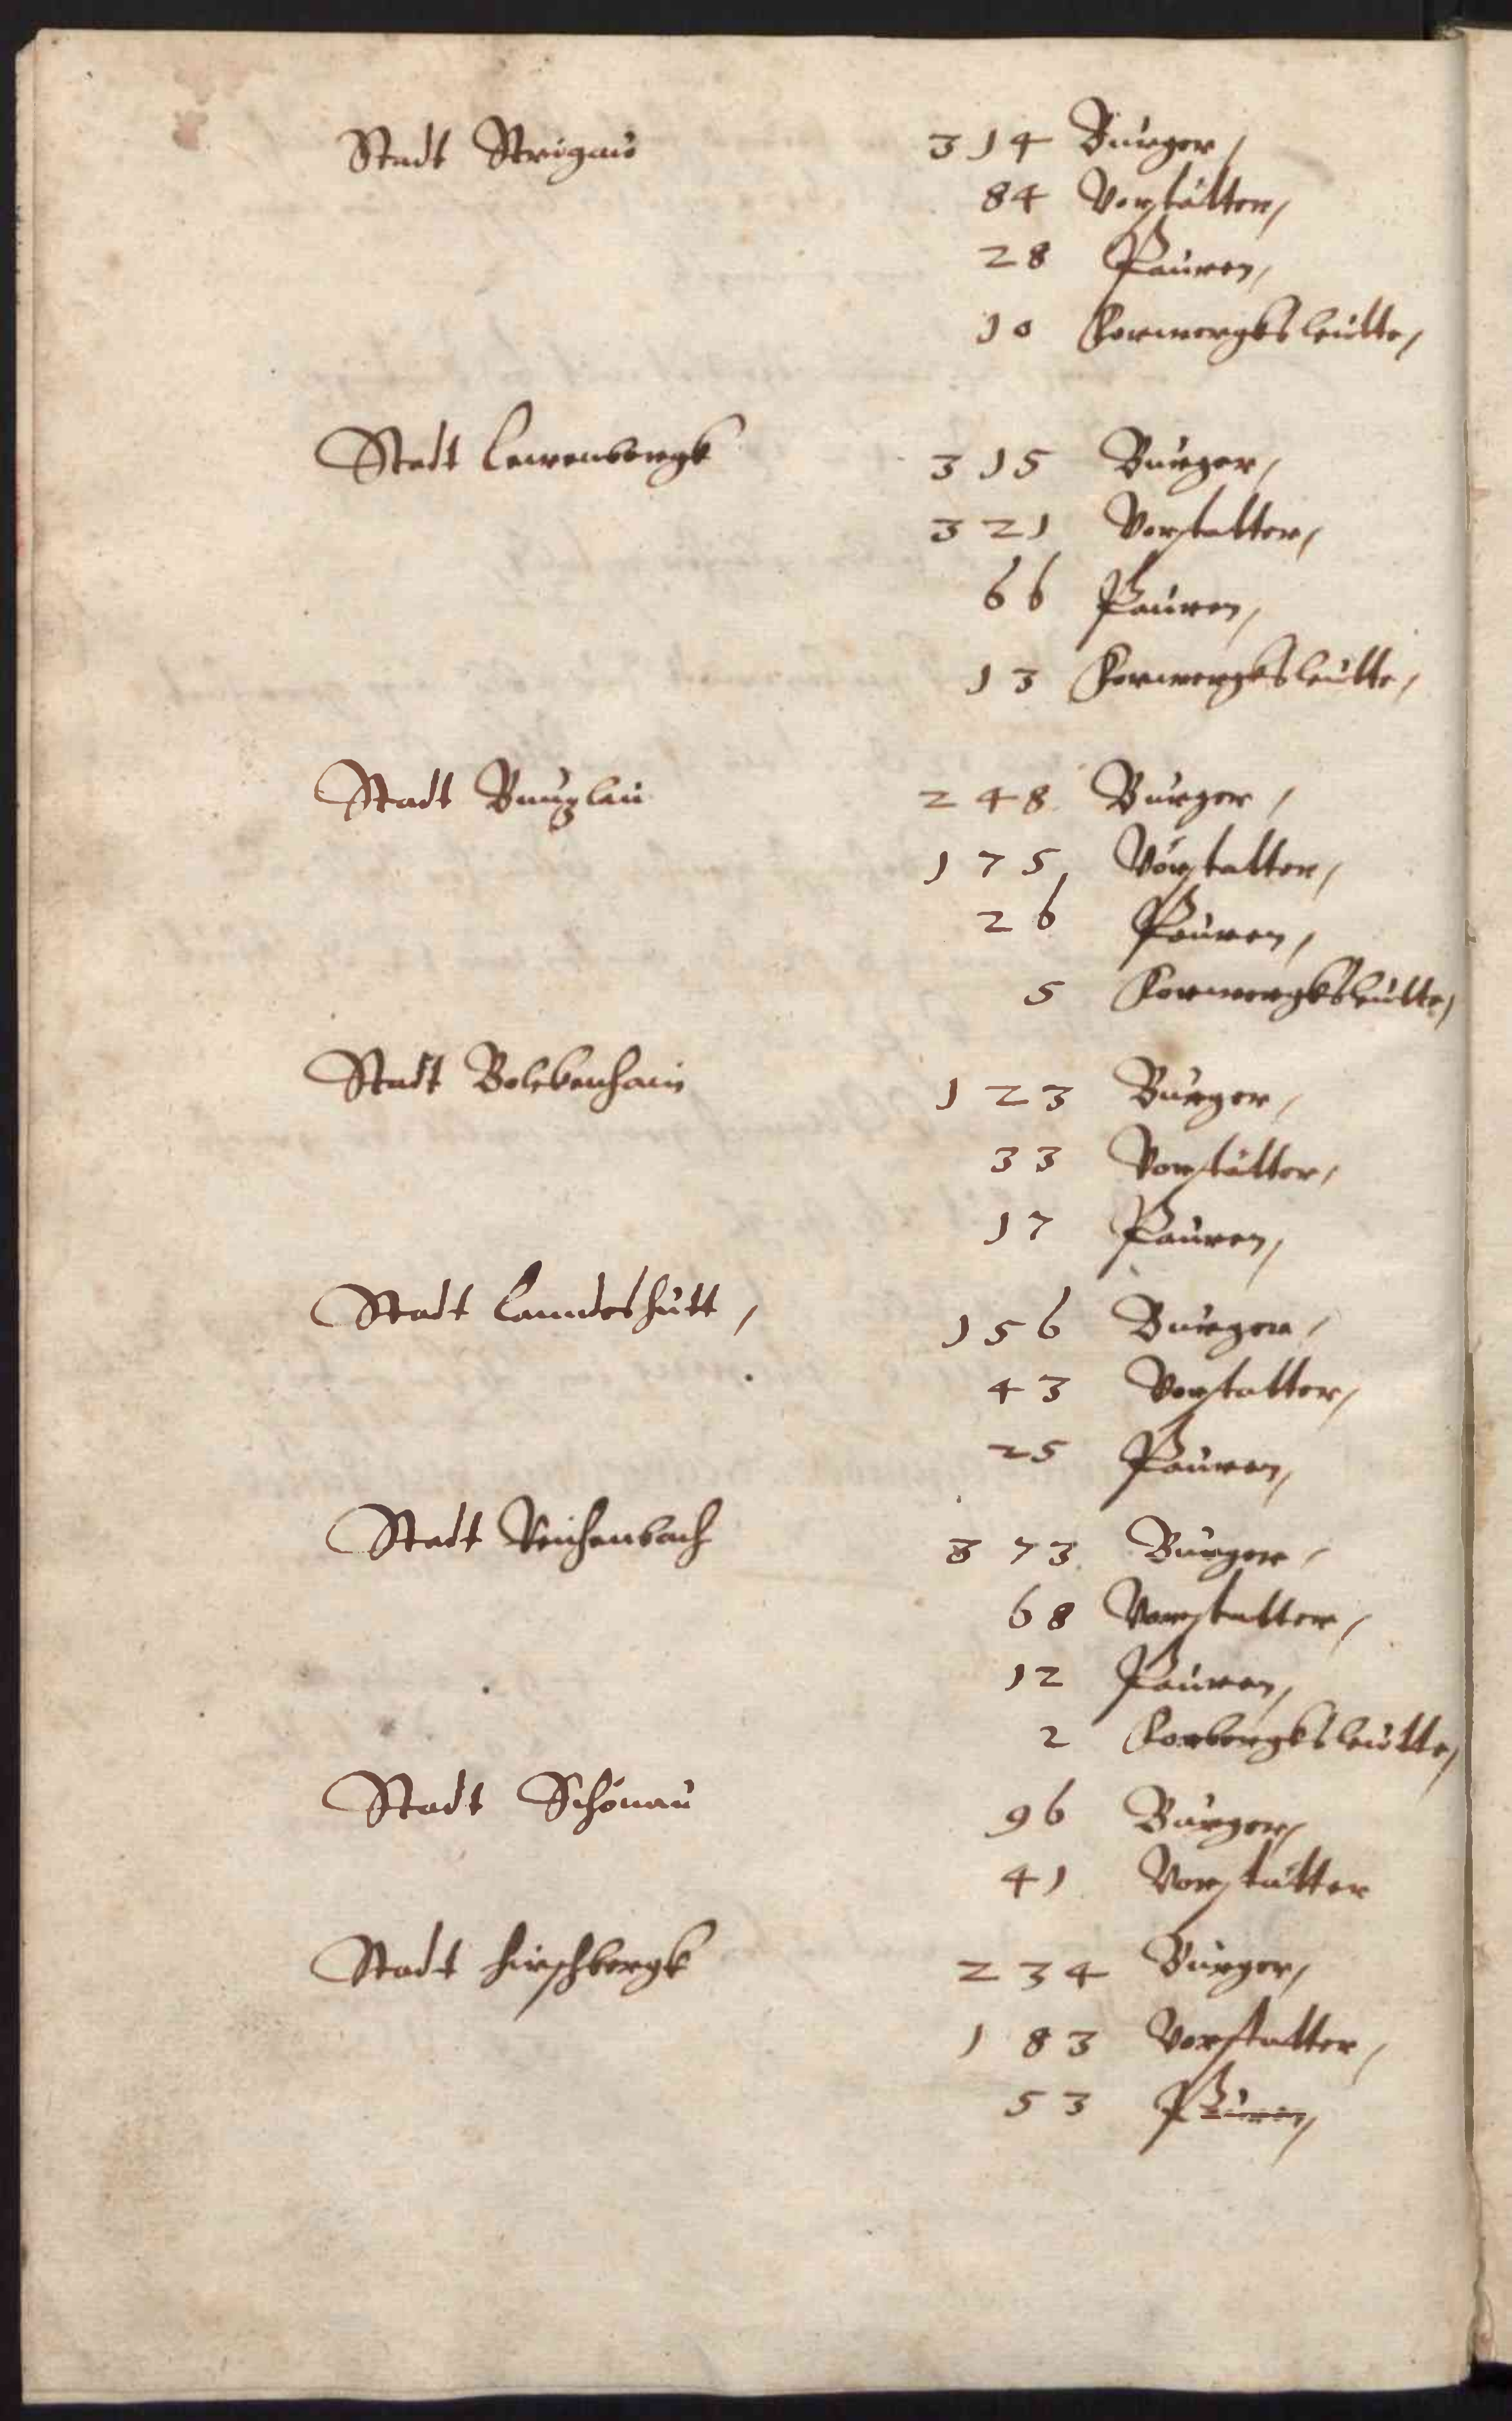 Stadt Strigau 314 Burger,
84 Vorstätter,
28 Pauren,
10 Forwergksleutte,
Stadt Lewenbergk 315 Burger,
321 Vorstatter,
66 Pauren,
13 Forwergksleutte,
Stadt Buntzlau 248 Burger,
175 Vorstatter,
26 Pauren,
5 Forwergksleutte,
Stadt Bolckenhain 123 Burger,
33 Vorstätter,
17 Pauren,
Stadt Lanndeshutt, 156 Burger,
43 Vorstatter,
25 Pauren,
Stadt Reichenbach 373 Burger,
68 Vorstatter,
12 Pauren,
2 Forbergksleutte,
Stadt Schönau 96 Burger,
41 Vorstätter
Stadt Hirschbergk 234 Burger,
183 Vorstatter,
53 Pauren,